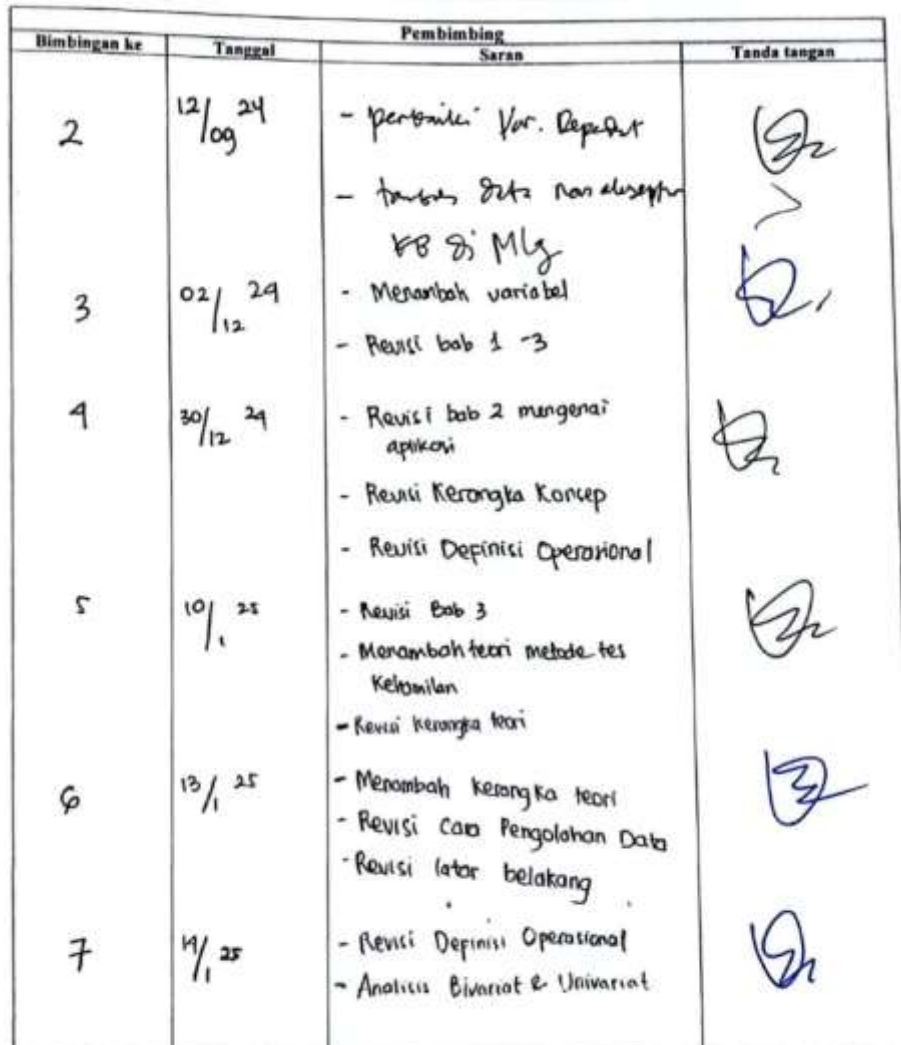 Pembimbing
Bimbingan ke Tanggal Saran Tanda tangan
2 12/09 24 - perbaiki Var. Depedent
- data non akseptor
KB di Mlg
3 02/12 24 - Menambah variabel
- Revisi bab 1 -3
4 30/12 24 - Revisi bab 2 mengenai
aplikasi
- Revisi Kerangka Konsep
- Revisi Definisi Operasional
5 10/1 25 - Revisi Bab 3
- Menambah teori metode tes
Kehamilan
- Revisi kerangka teori
6 13/1 25 - Menambah kerangka teori
- Revisi Cara Pengolahan Data
- Revisi latar belakang
7 14/1 25 - Revisi Definisi Operasional
- Analisis Bivariat & Univariat